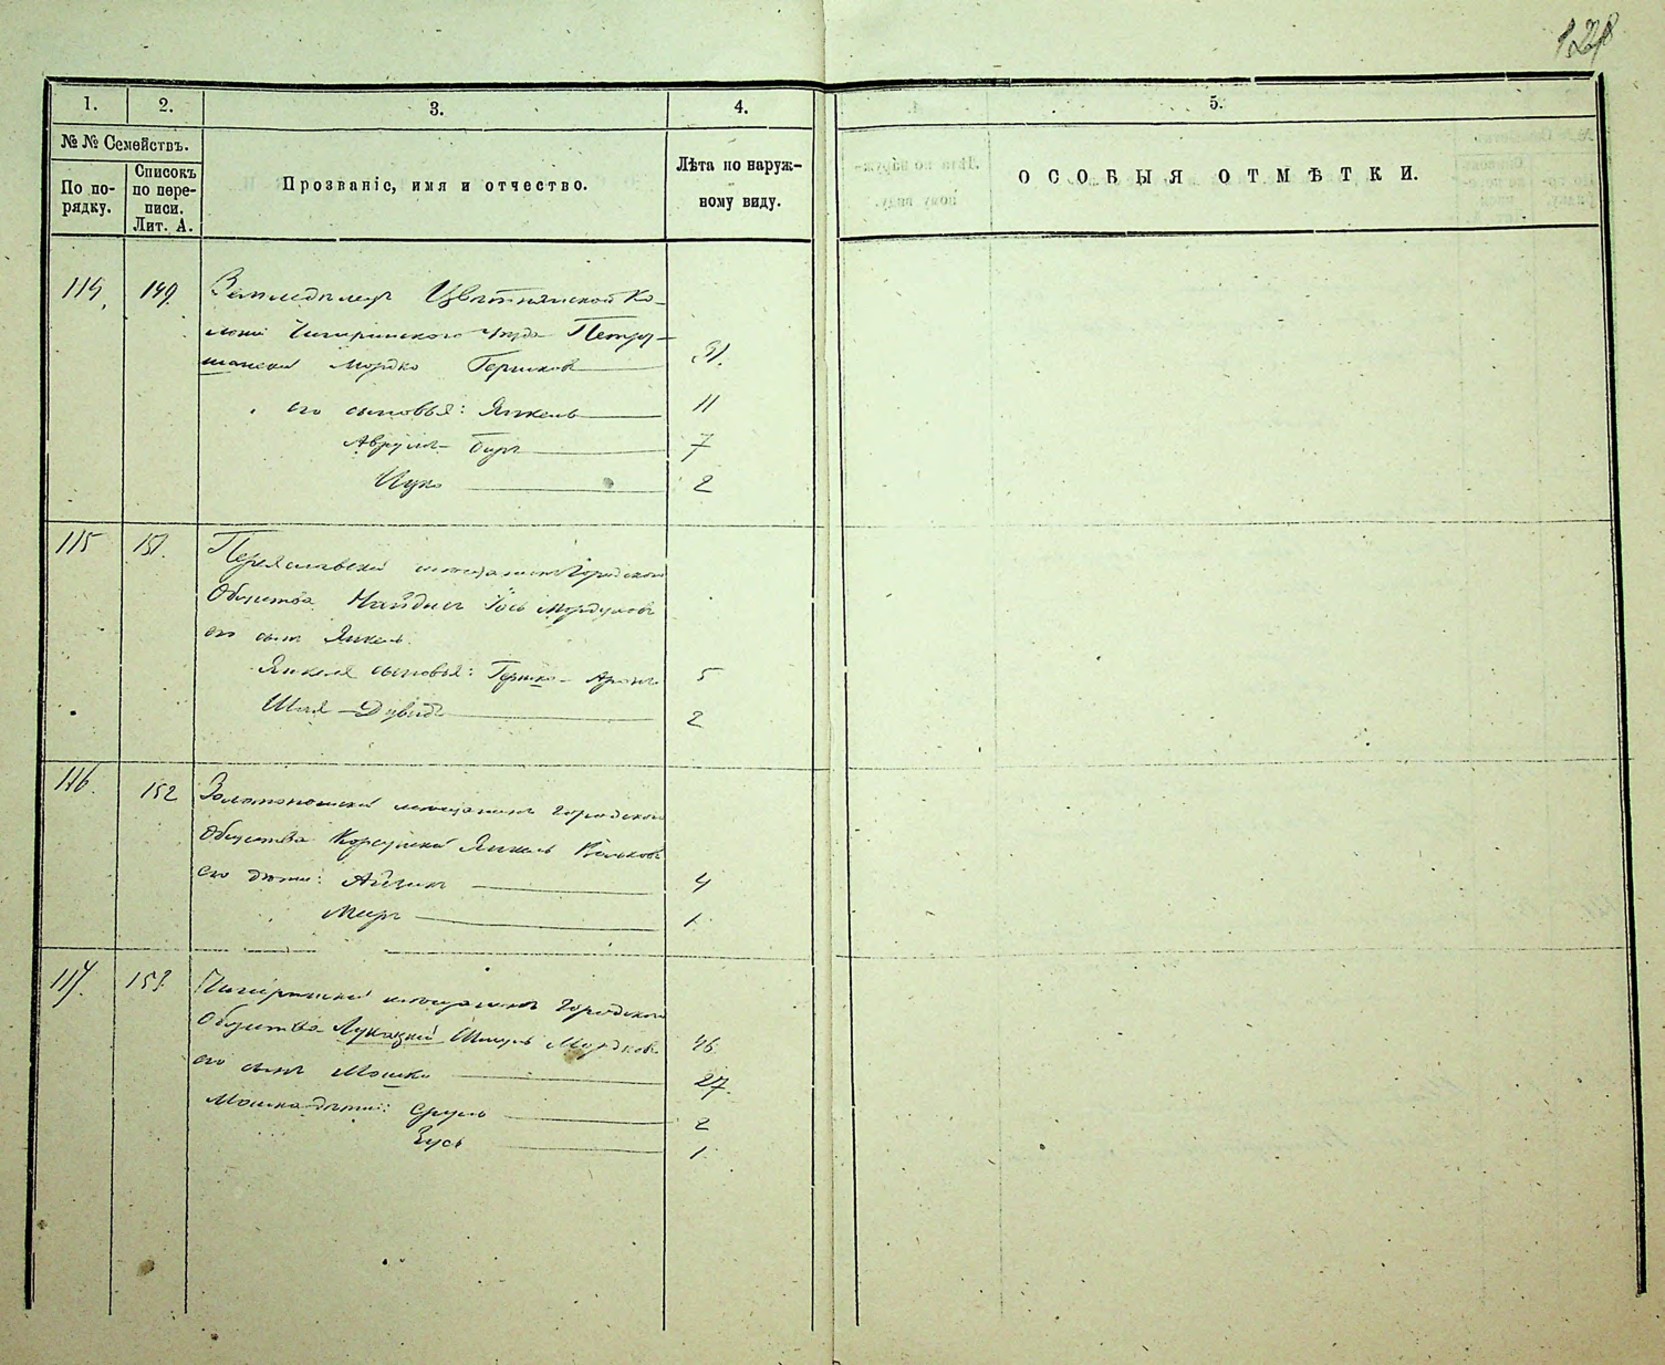 128
1. 2. 3. 4. 5.
№ № Семействъ.
По по-
рядку.
Списокъ
по пере-
писи.
Лит. А.
Прозваніе, имя и отчество.
Лѣта по наруж-
ному виду.
ОСОБЫЯ ОТМѢТКИ.
114. 149. Земледѣлецъ Цвѣтнянской Ко-
лоніи Чигиринскаго уѣзда Петру-
шанскій Мордко Гершковъ 31.
его сыновья: Янкель 11
Аврумъ-Беръ 7
Ицко 2
115 151. Переяславскій мѣщанинъ Городскаго
Общества Найдисъ Іось Мордуховъ
его сынъ Янкель.
Янкеля сыновья: Гершко-Аронъ 5
Шая-Дувидъ 2
116. 152 Золотоношскій мѣщанинъ Городскаго
Общества Корсунскій Янкель Вольковъ
его дѣти: Айзикъ 4
Мееръ 1.
117. 153. Чигиринскій мѣщанинъ Городскаго
Общества Лукацкій Шмуль Мордковъ 46.
его сынъ Мошко 27.
Мошка дѣти: Сруль 2
Зусь 1.